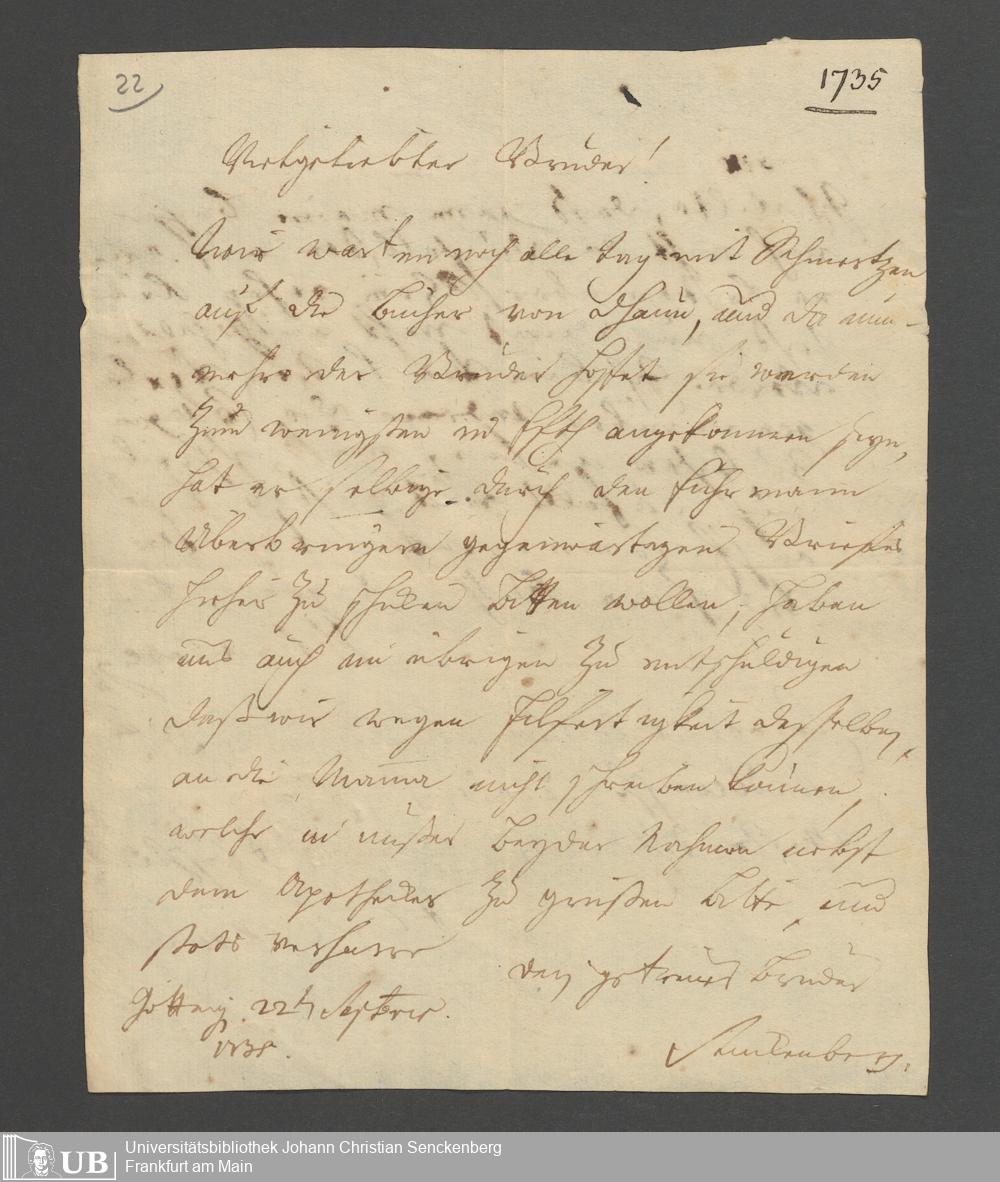 22
1735
Vielgeliebter Bruder!
Wir warten noch alle Tag mit Schmertzen
auf die Bücher von Dhaun, und da nun-
mehro der Bruder hoffet sie werden
zum wenigsten in Ffth angekommen seyn,
hat er selbige durch den Fuhrmann
Überbringern gegenwärtigen Briefes
hieher zu schicken bitten wollen, haben
uns auch im übrigen zu entschuldigen
daß wir wegen Eilfertigkeit desselben
an die Mama nicht schreiben können,
welche in unser beyder Nahmen nebst
dem Apothecker zu grüßen bitte, und
stets verharre
dein getreuer Bruder
Götting. 22t Septbris.
1735.
Senckenberg.
UB
Universitätsbibliothek Johann Christian Senckenberg
Frankfurt am Main